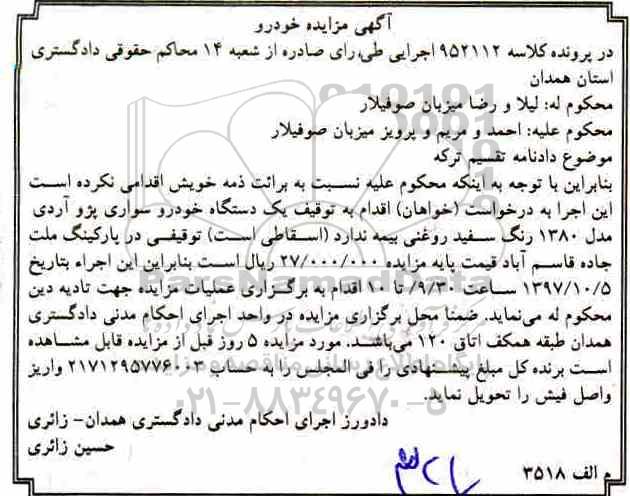 آگهی مزایده خودرو
در پرونده کلاسه ۹۵۲۱۱۲ اجرایی طی رای صادره از شعبه ۱۴ محاکم حقوقی دادگستری
استان همدان
محکوم له: لیلا و رضا میزبان صوفیلار
محکوم علیه: احمد و مریم و پرویز میزبان صوفیلار
موضوع دادنامه تقسیم ترکه
بنابراین با توجه به اینکه محکوم علیه نسبت به برائت ذمه خویش اقدامی نکرده است
این اجرا به درخواست (خواهان) اقدام به توقیف یک دستگاه خودرو سواری پژو آردی
مدل ۱۳۸۰ رنگ سفید روغنی بیمه ندارد (اسقاطی است) توقیفی در پارکینگ ملت
جاده قاسم آباد قیمت پایه مزایده ۲۷/۰۰۰/۰۰۰ ریال است بنابراین این اجراء بتاریخ
۱۳۹۷/۱۰/۵ ساعت ۹/۳۰/ تا ۱۰ اقدام به برگزاری عملیات مزایده جهت تادیه دین
محکوم له می‌نماید. ضمنا محل برگزاری مزایده در واحد اجرای احکام مدنی دادگستری
همدان طبقه همکف اتاق ۱۲۰ می‌باشد. مورد مزایده ۵ روز قبل از مزایده قابل مشاهده
است برنده کل مبلغ پیشنهادی را فی المجلس را به حساب ۲۱۷۱۲۹۵۷۷۶۰۰۳ واریز
واصل فیش را تحویل نماید.
دادورز اجرای احکام مدنی دادگستری همدان- زائری
حسین زائری
م الف ۳۵۱۸
ParsNamadData
۰۲۱-۸۸۳۴۹۶۷۰-۵